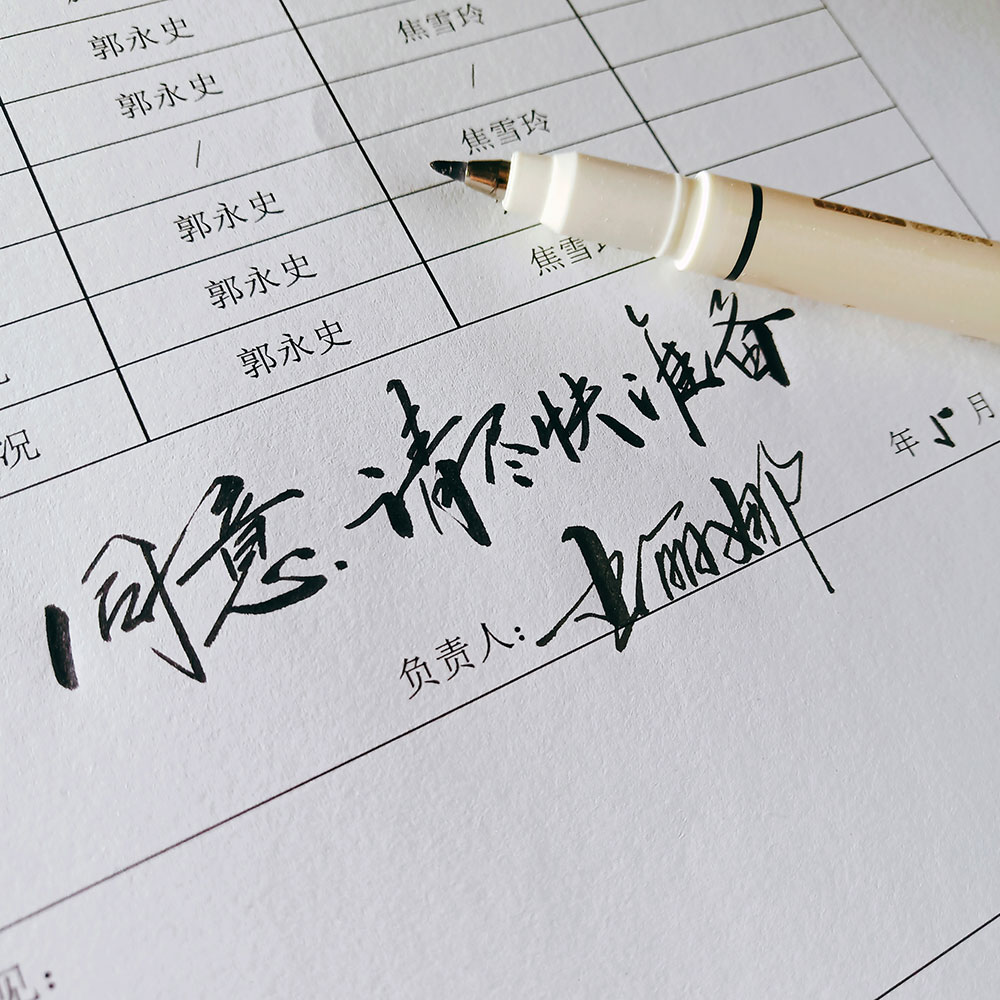 郭永史 焦雪玲
郭永史 /
/ 焦雪玲
郭永史
郭永史 焦雪
郭永史
况
同意.请尽快准备
年5月
负责人: 丽娜
见: